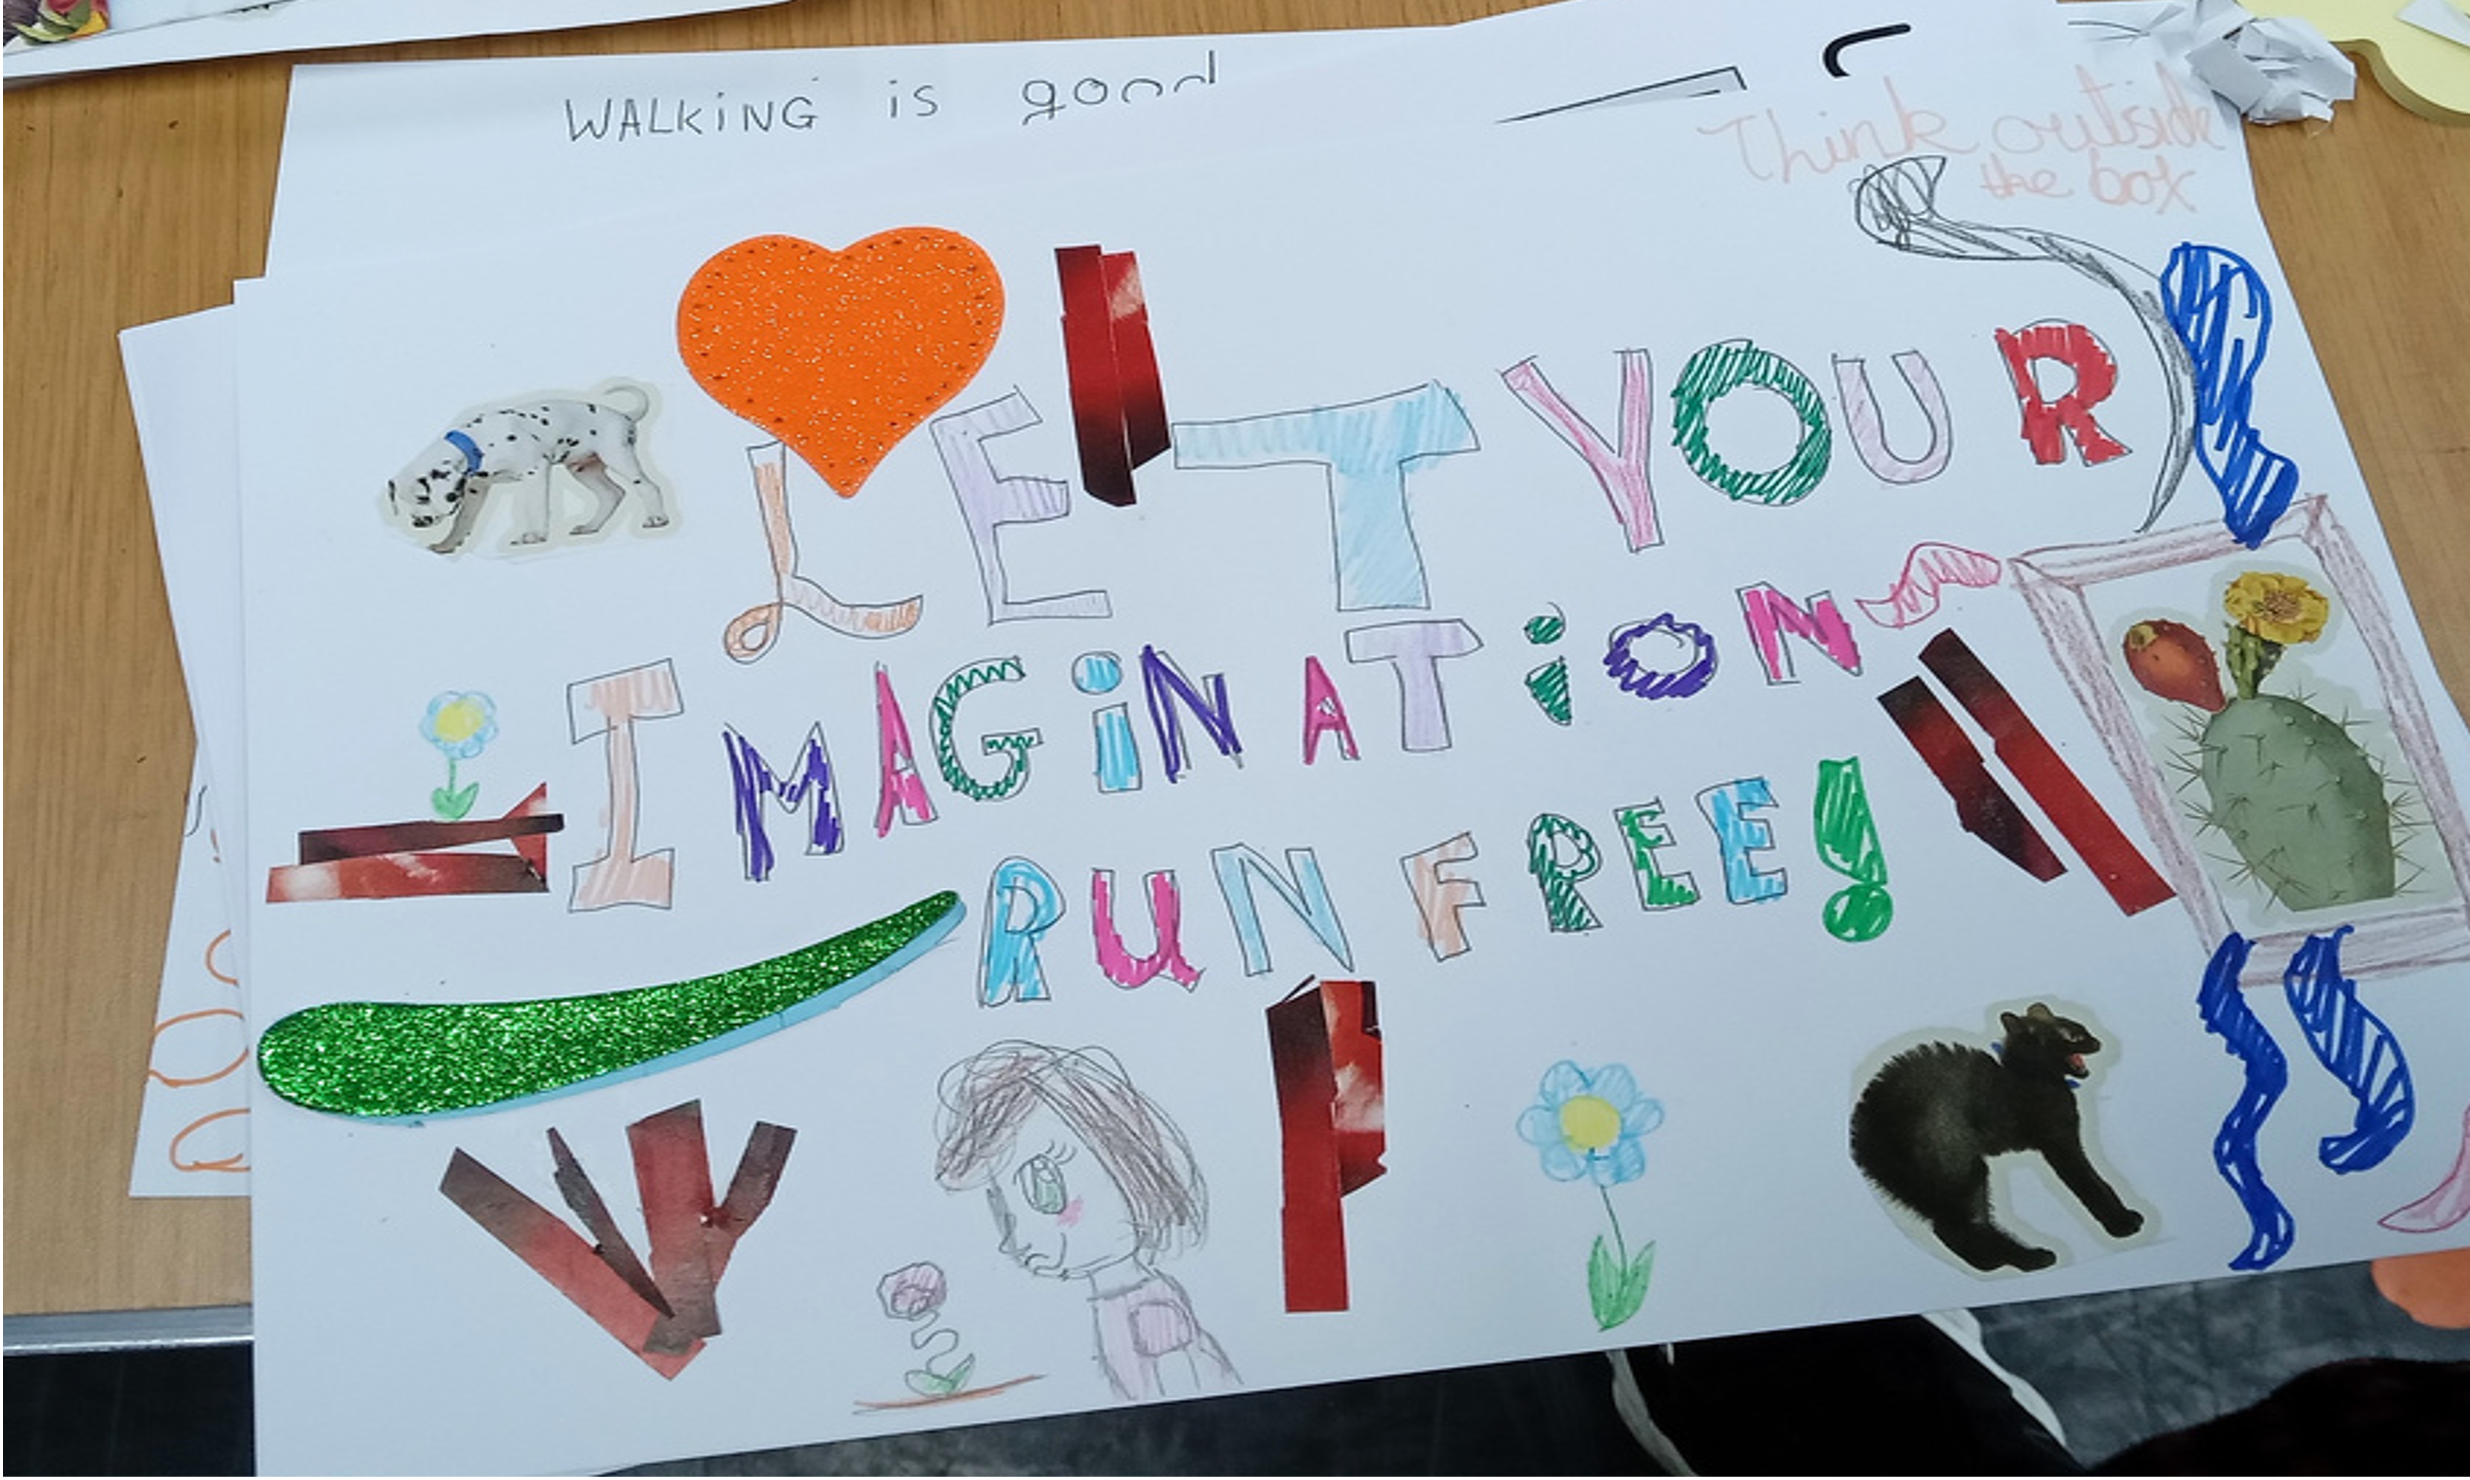 WALKiNG is good
Think outside
the box
LET YOUR
IMAGiNATiON
RUN FREE!